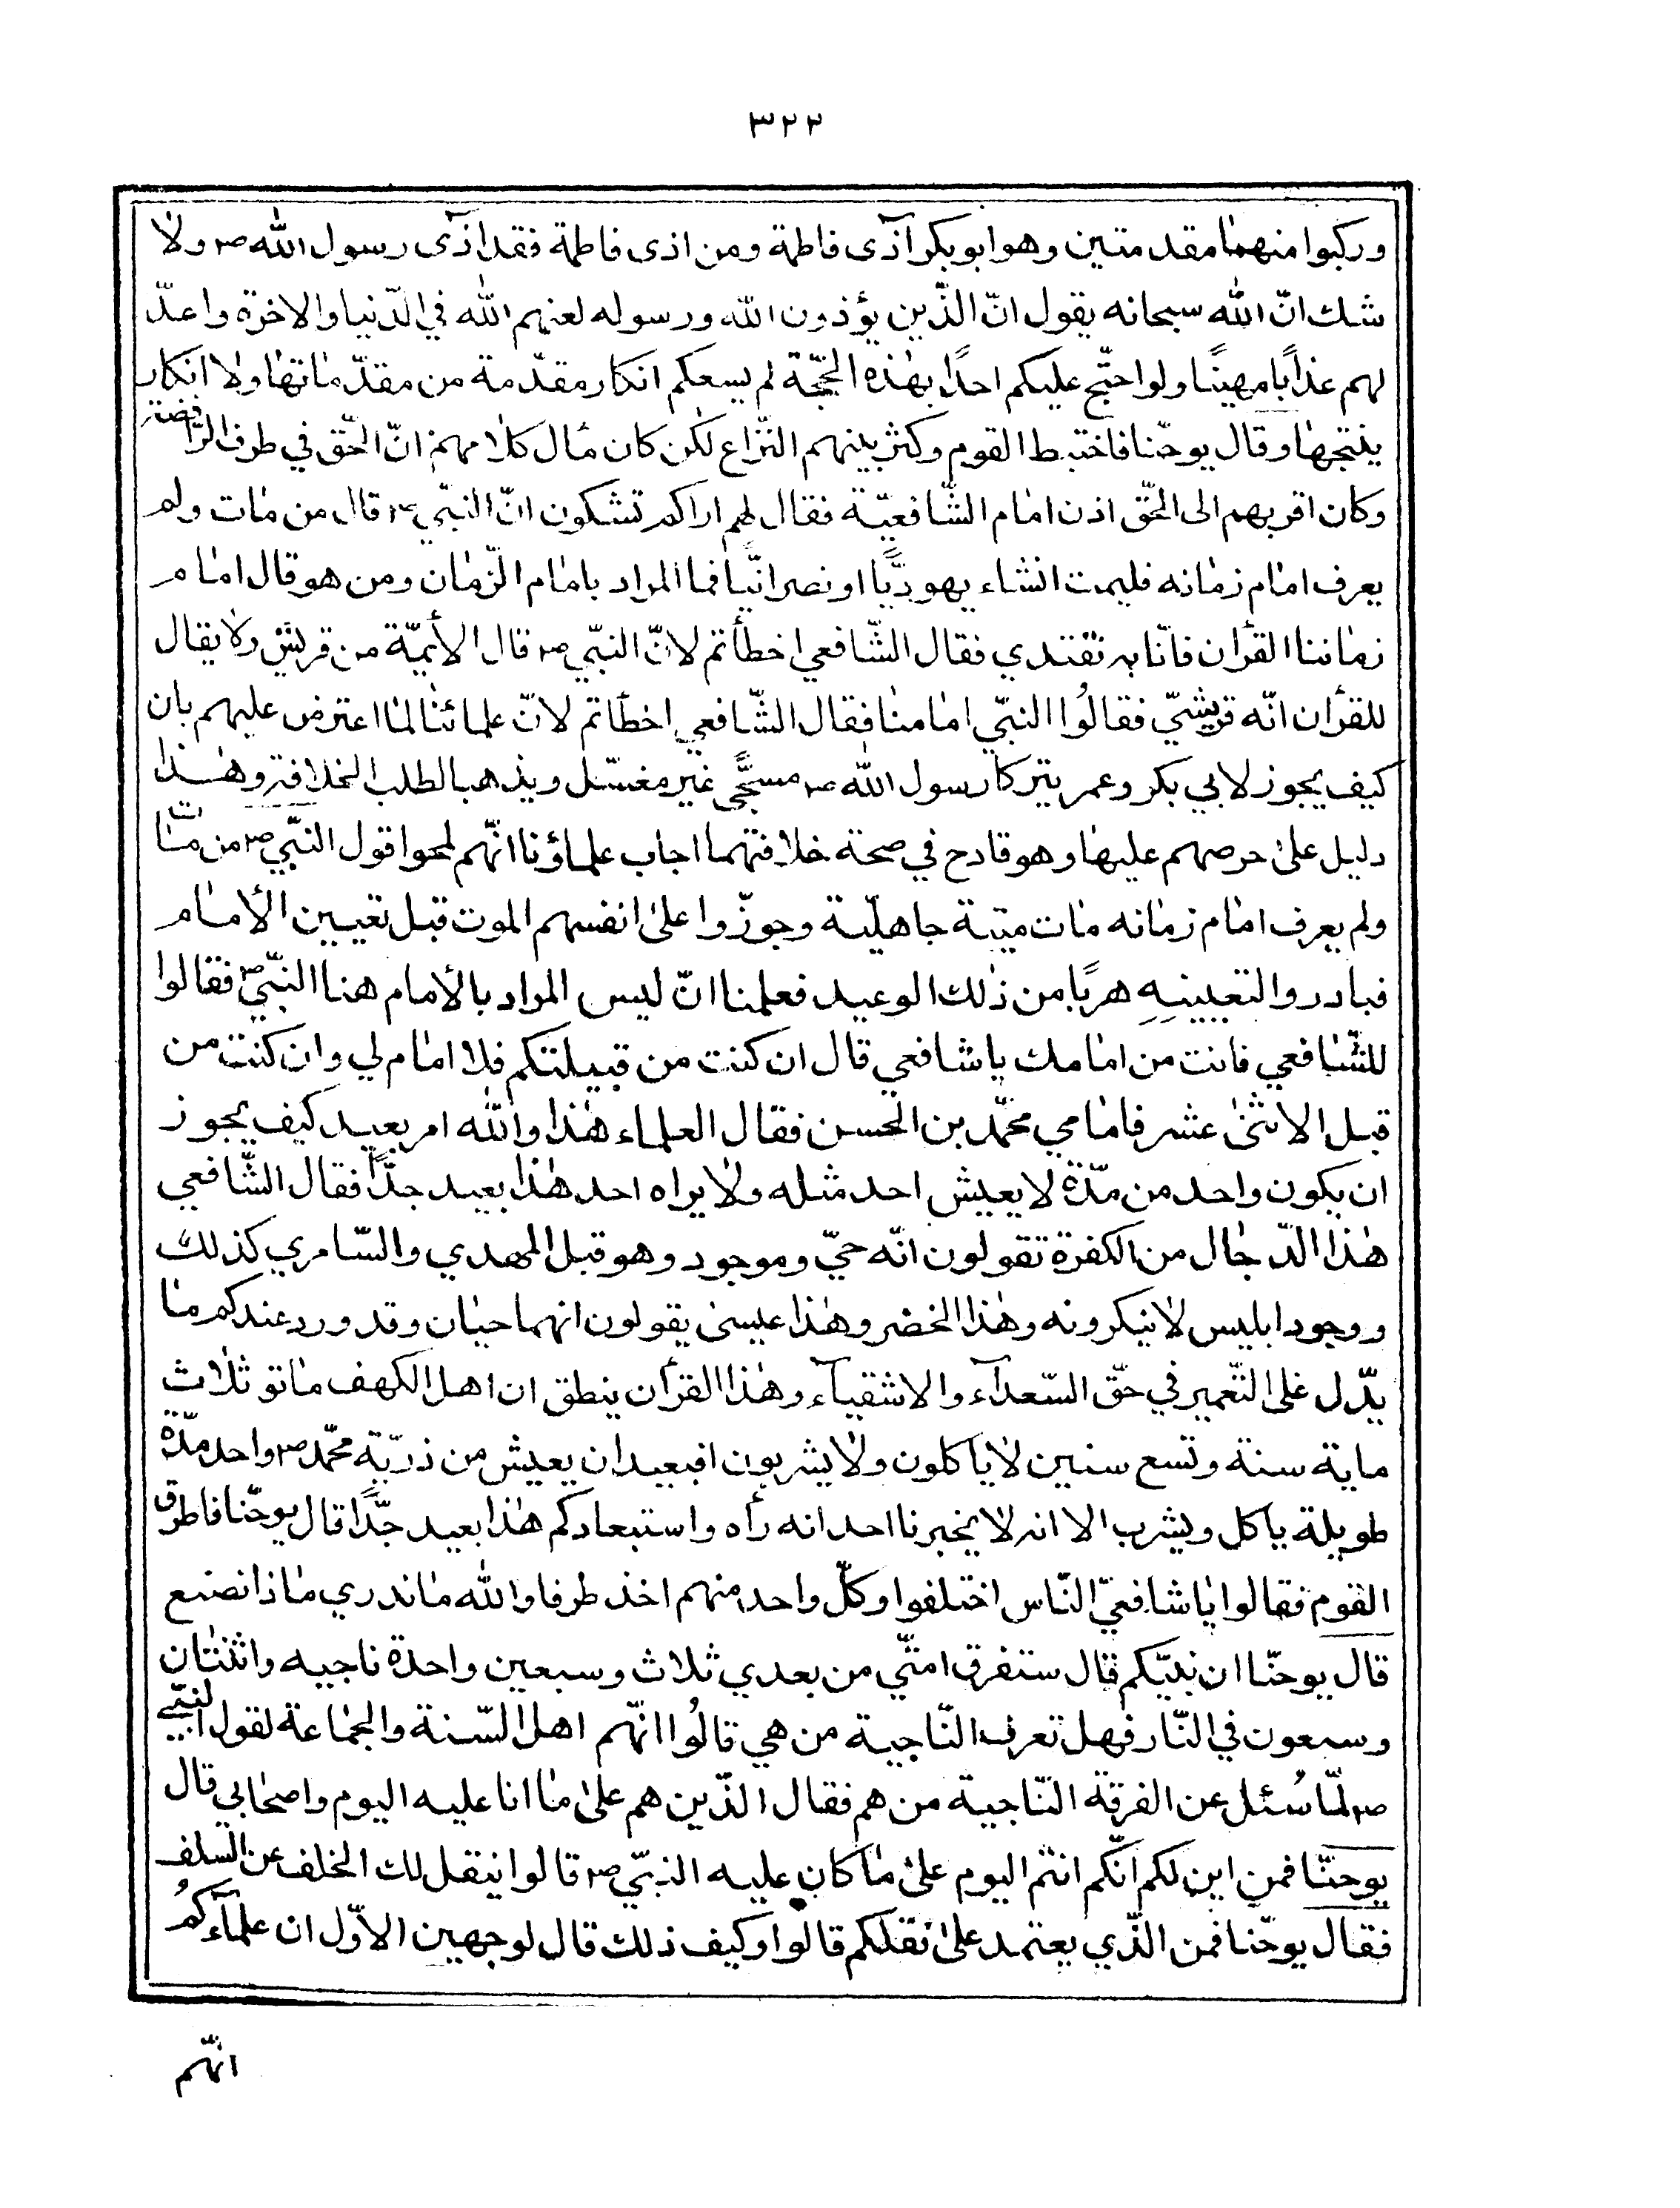 ٣٢٢
وركبوا منهما مقدمتين وهو ابو بكر آذى فاطمة ومن اذى فاطمة فقد اذى رسول الله ص ولا
شك انّ الله سبحانه يقول انّ الذّين يؤذون الله ورسوله لعنهم الله في الدّنيا والاخرة واعدّ
لهم عذابًا مهينًا ولو احتّج عليكم احدًا بهٰذه الحجّة لم يسعكم انكار مقدّمة من مقدّماتها ولا انكار
ينتجها وقال يوحّنا فاختبط القوم وكثر بينهم النّزاع لكن كان مٰال كلامهم انّ الحّق في طرف الرّافضة
وكان اقربهم الى الحّق اذن امام الشّافعيّة فقال لهم اراكم تشكون انّ النبّي ص قال من مات ولم
يعرف امام زمانه فليمت انشاء يهوديًّا او نصرانيًّا فما المراد بامام الزّمان ومن هو قال امام
زماننا القرأن فانّا به نقتدي فقال الشّافعي اخطأتم لانّ النبّي ص قال الأئمّة من قريش ولا يقال
للقرأن انّه قريشيّ فقالُوا النبّي امامنا فقال الشّافعي اخطأتم لانّ علمائنا لما اعترض عليهم بان
كيف يجوز لابي بكر وعمر يتركا رسول الله ص مسجًّى غير مغسّل ويذهبا لطلب الخلافة وهٰذا
دليل علىٰ حرصهم عليها وهو قادح في صحة خلافتهما اجاب علماؤنا انّهم لمحوا قول النبّي ص من مات
ولم يعرف امام زمانه مات ميتة جاهليّة وجوزّوا علىٰ انفسهم الموت قبل تعيين الأمام
فبادروا لتعيينهِ هربًا من ذٰلك الوعيد فعلمنا انّ ليس المراد بالأمام هنا النبّيّ ص فقالوا
للشّافعي فانت من امامك يا شافعي قال ان كنت من قبيلتكم فلا امام لي وان كنت من
قبل الاثنىٰ عشر فامامي محمّد بن الحسن فقال العلماء هٰذا والله امر بعيد كيف يجوز
ان يكون واحد من مدّة لا يعيش احد مثله ولا يراه احد هٰذا بعيد جدًّا فقال الشّافعي
هٰذا الدّجال من الكفرة تقولون انّه حيّ وموجود وهو قبل المهدي والسّامري كذلك
ووجود ابليس لا ينكرونه وهٰذا الخضر وهٰذا عيسىٰ يقولون انهما حيان وقد ورد عندكم ما
يدّل على التّعمير في حقّ السّعدآء والاشقيآء وهٰذا القرأن ينطق ان اهل الكهف ماتو ثلاث
ماية سنة وتسع سنين لا ياكلون ولا يشربون افبعيد ان يعيش من ذريّة محمّد ص واحد مدّة
طويلة ياكل ويشرب الا انه لا يخبرنا احد انه رأه واستبعادكم هٰذا بعيد جدًّا قال يوحّنا فاطرق
القوم فقالوا يا شافعيّ النّاس اختلفوا وكلّ واحد منهم اخذ طرفا والله ما ندري ماذا نصنع
قال يوحنّا ان نبيّكم قال ستفرق امتّي من بعدي ثلاث وسبعين واحدة ناجيه واثنتان
وسبعون في النّار فهل تعرف النّاجية من هي قالُوا انّهم اهل السّنة والجماعة لقول النبّي
ص لمّا سُئل عن الفرقة النّاجية من هم فقال الذّين هم علىٰ ما انا عليه اليوم واصحابي قال
يوحنّا فمن اين لكم انّكم انتم اليوم علىٰ ما كان عليه النبّي ص قالوا ينقل لك الخلف عن السلف
فقال يوحّنا فمن الذّي يعتمد علىٰ نقلكم قالوا وكيف ذلك قال لوجهين الاوّل ان علمآءكمُ
انّهم